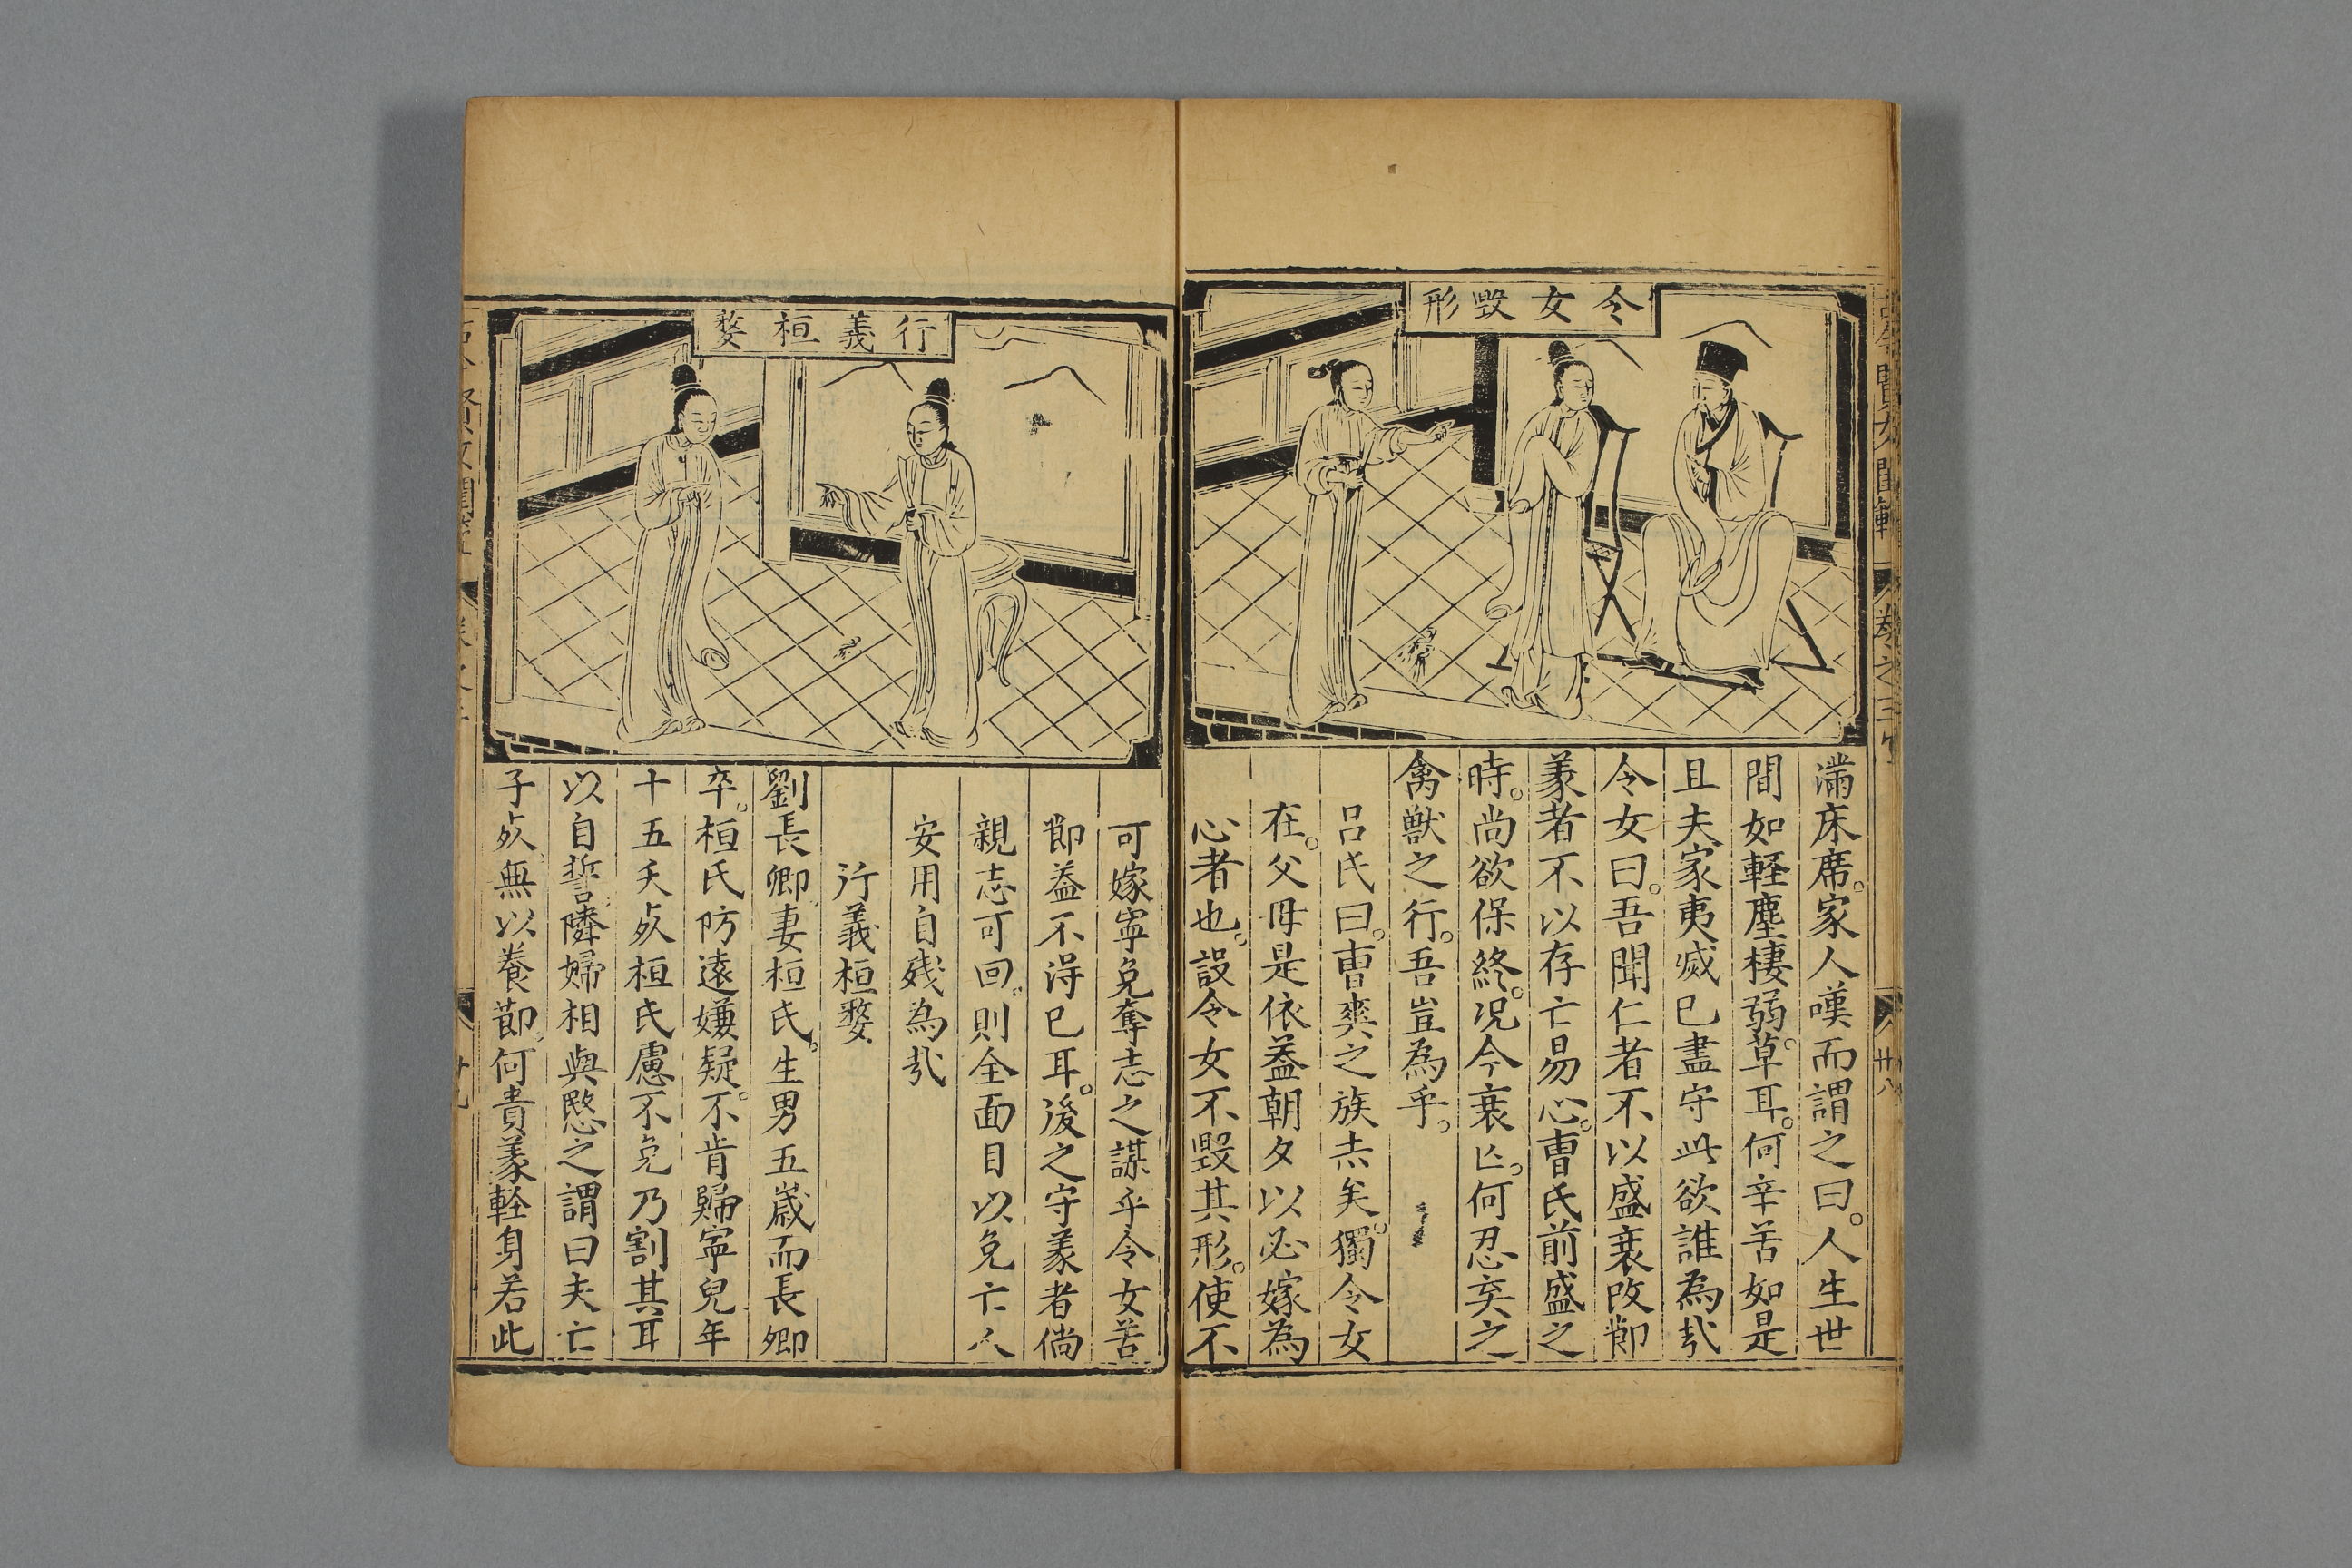 令女毀形
滿床席。家人嘆而謂之曰。人生世
間如輕塵棲弱草耳。何辛苦如是
且夫家夷滅已盡守此欲誰為㢤
令女曰。吾聞仁者不以盛衰改節
義者不以存亡易心。曹氏前盛之
時。尚欲保終。况今衰亡。何忍棄之
禽獸之行。吾豈為乎。
呂氏曰。曹爽之族赤矣。獨令女
在。父母是依葢朝夕以必嫁為
心者也。設令女不毀其形。使不
古今賢女閨範
卷之三
廿八
行義桓嫠
可嫁寧免奪志之謀乎令女苦
節葢不得已耳。後之守義者倘
親志可回。則全面目以免亡人
安用自殘為㢤
行義桓嫠
劉長卿妻桓氏。生男五歲而長卿
卒。桓氏防遠嫌疑。不肯歸寧兒年
十五夭死桓氏慮不免乃割其耳
以自誓隣婦相與愍之謂曰夫亡
子死無以養節。何貴義輕身若此